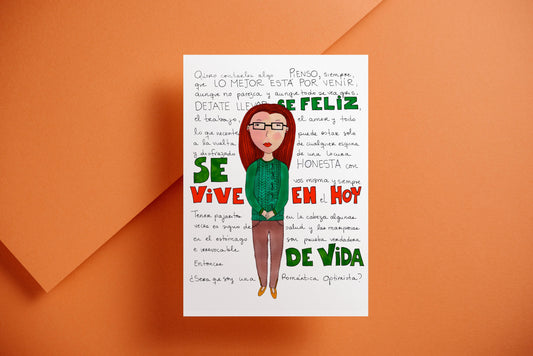 Quiero contarles algo PIENSO, siempre,
que LO MEJOR ESTÁ POR VENIR,
aunque no parezca y aunque todo se vea gris.
DEJATE LLEVAR SE FELIZ,
el trabajo, el amor y todo
lo que necesite puede estar solo
a la vuelta de cualquier esquina
y disfrazado de una locura
SE HONESTA con
vos misma y siempre
VIVE EN el HOY
Tener pajaritos en la cabeza algunas
veces es signo de salud y las mariposas
en el estomago son prueba verdadera
e irrevocable DE VIDA
Entonces
¿Será que soy una Romántica Optimista?